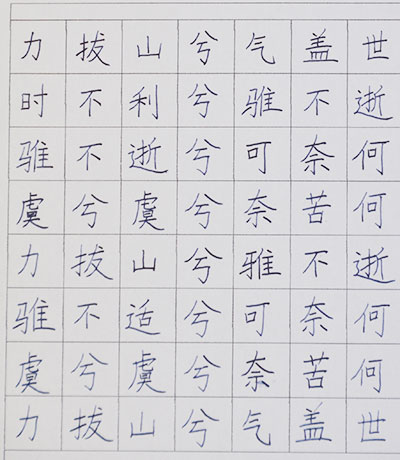 力拔山兮气盖世
时不利兮骓不逝
骓不逝兮可奈何
虞兮虞兮奈苦何
力拔山兮雅不逝
骓不适兮可奈何
虞兮虞兮奈苦何
力拔山兮气盖世